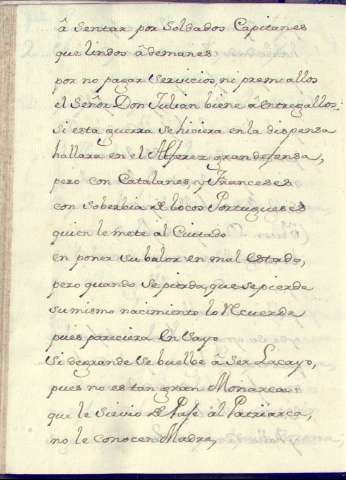 â sentar por Soldados Capitanes
que lindos âdemanes
por no pagar servicios, ni premiallos
el Señor Don Julian biene â entregallos:
si esta guerra se hiciera en la dispensa
hallara en el Alferez gran defensa,
pero con Catalanes, y Franceses
con soberbia de locos Portugueses
quien le mete al Cuitado
en poner su balor en mal estado,
pero quando se pierda, que se pierda
su mismo nacimiento lo recuerda
pues pareciera En Sayo
si de grande se buelbe â ser Lacayo,
pues no es tan gran Monarca
que le sirvio de Paje al Patriarca,
no le conocen Madre,